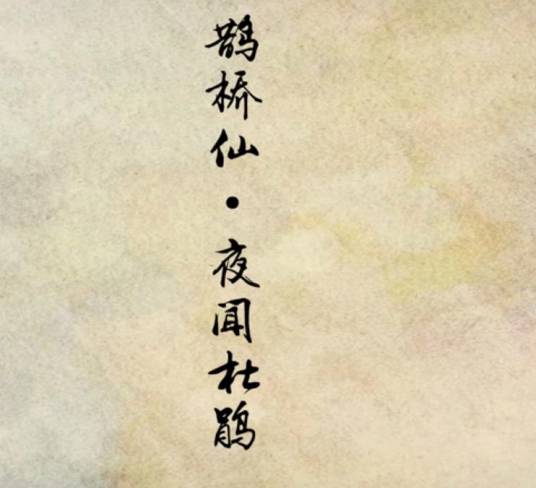 鹊桥仙·夜闻杜鹃